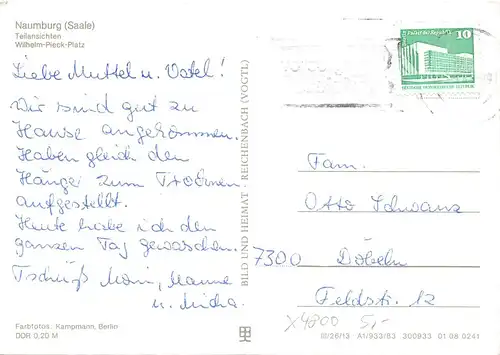 Naumburg (Saale)
Teilansichten
Wilhelm-Pieck-Platz
Liebe Muttel u. Vatel!
Wir sind gut zu
Hause angekommen.
Haben gleich den
Hänger zum Trocknen
aufgestellt.
Heute habe ich den
ganzen Tag gewaschen.
Tschüß Moni, Manne
u. Micha.
Farbfotos: Kampmann, Berlin
DDR 0,20 M
BILD UND HEIMAT · REICHENBACH (VOGTL)
Palast der Republik
10
Fam.
Otto Schwanz
7300 Döbeln
Feldstr. 12
X4800 5,-
III/26/13 A1/933/83 300933 01 08 0241